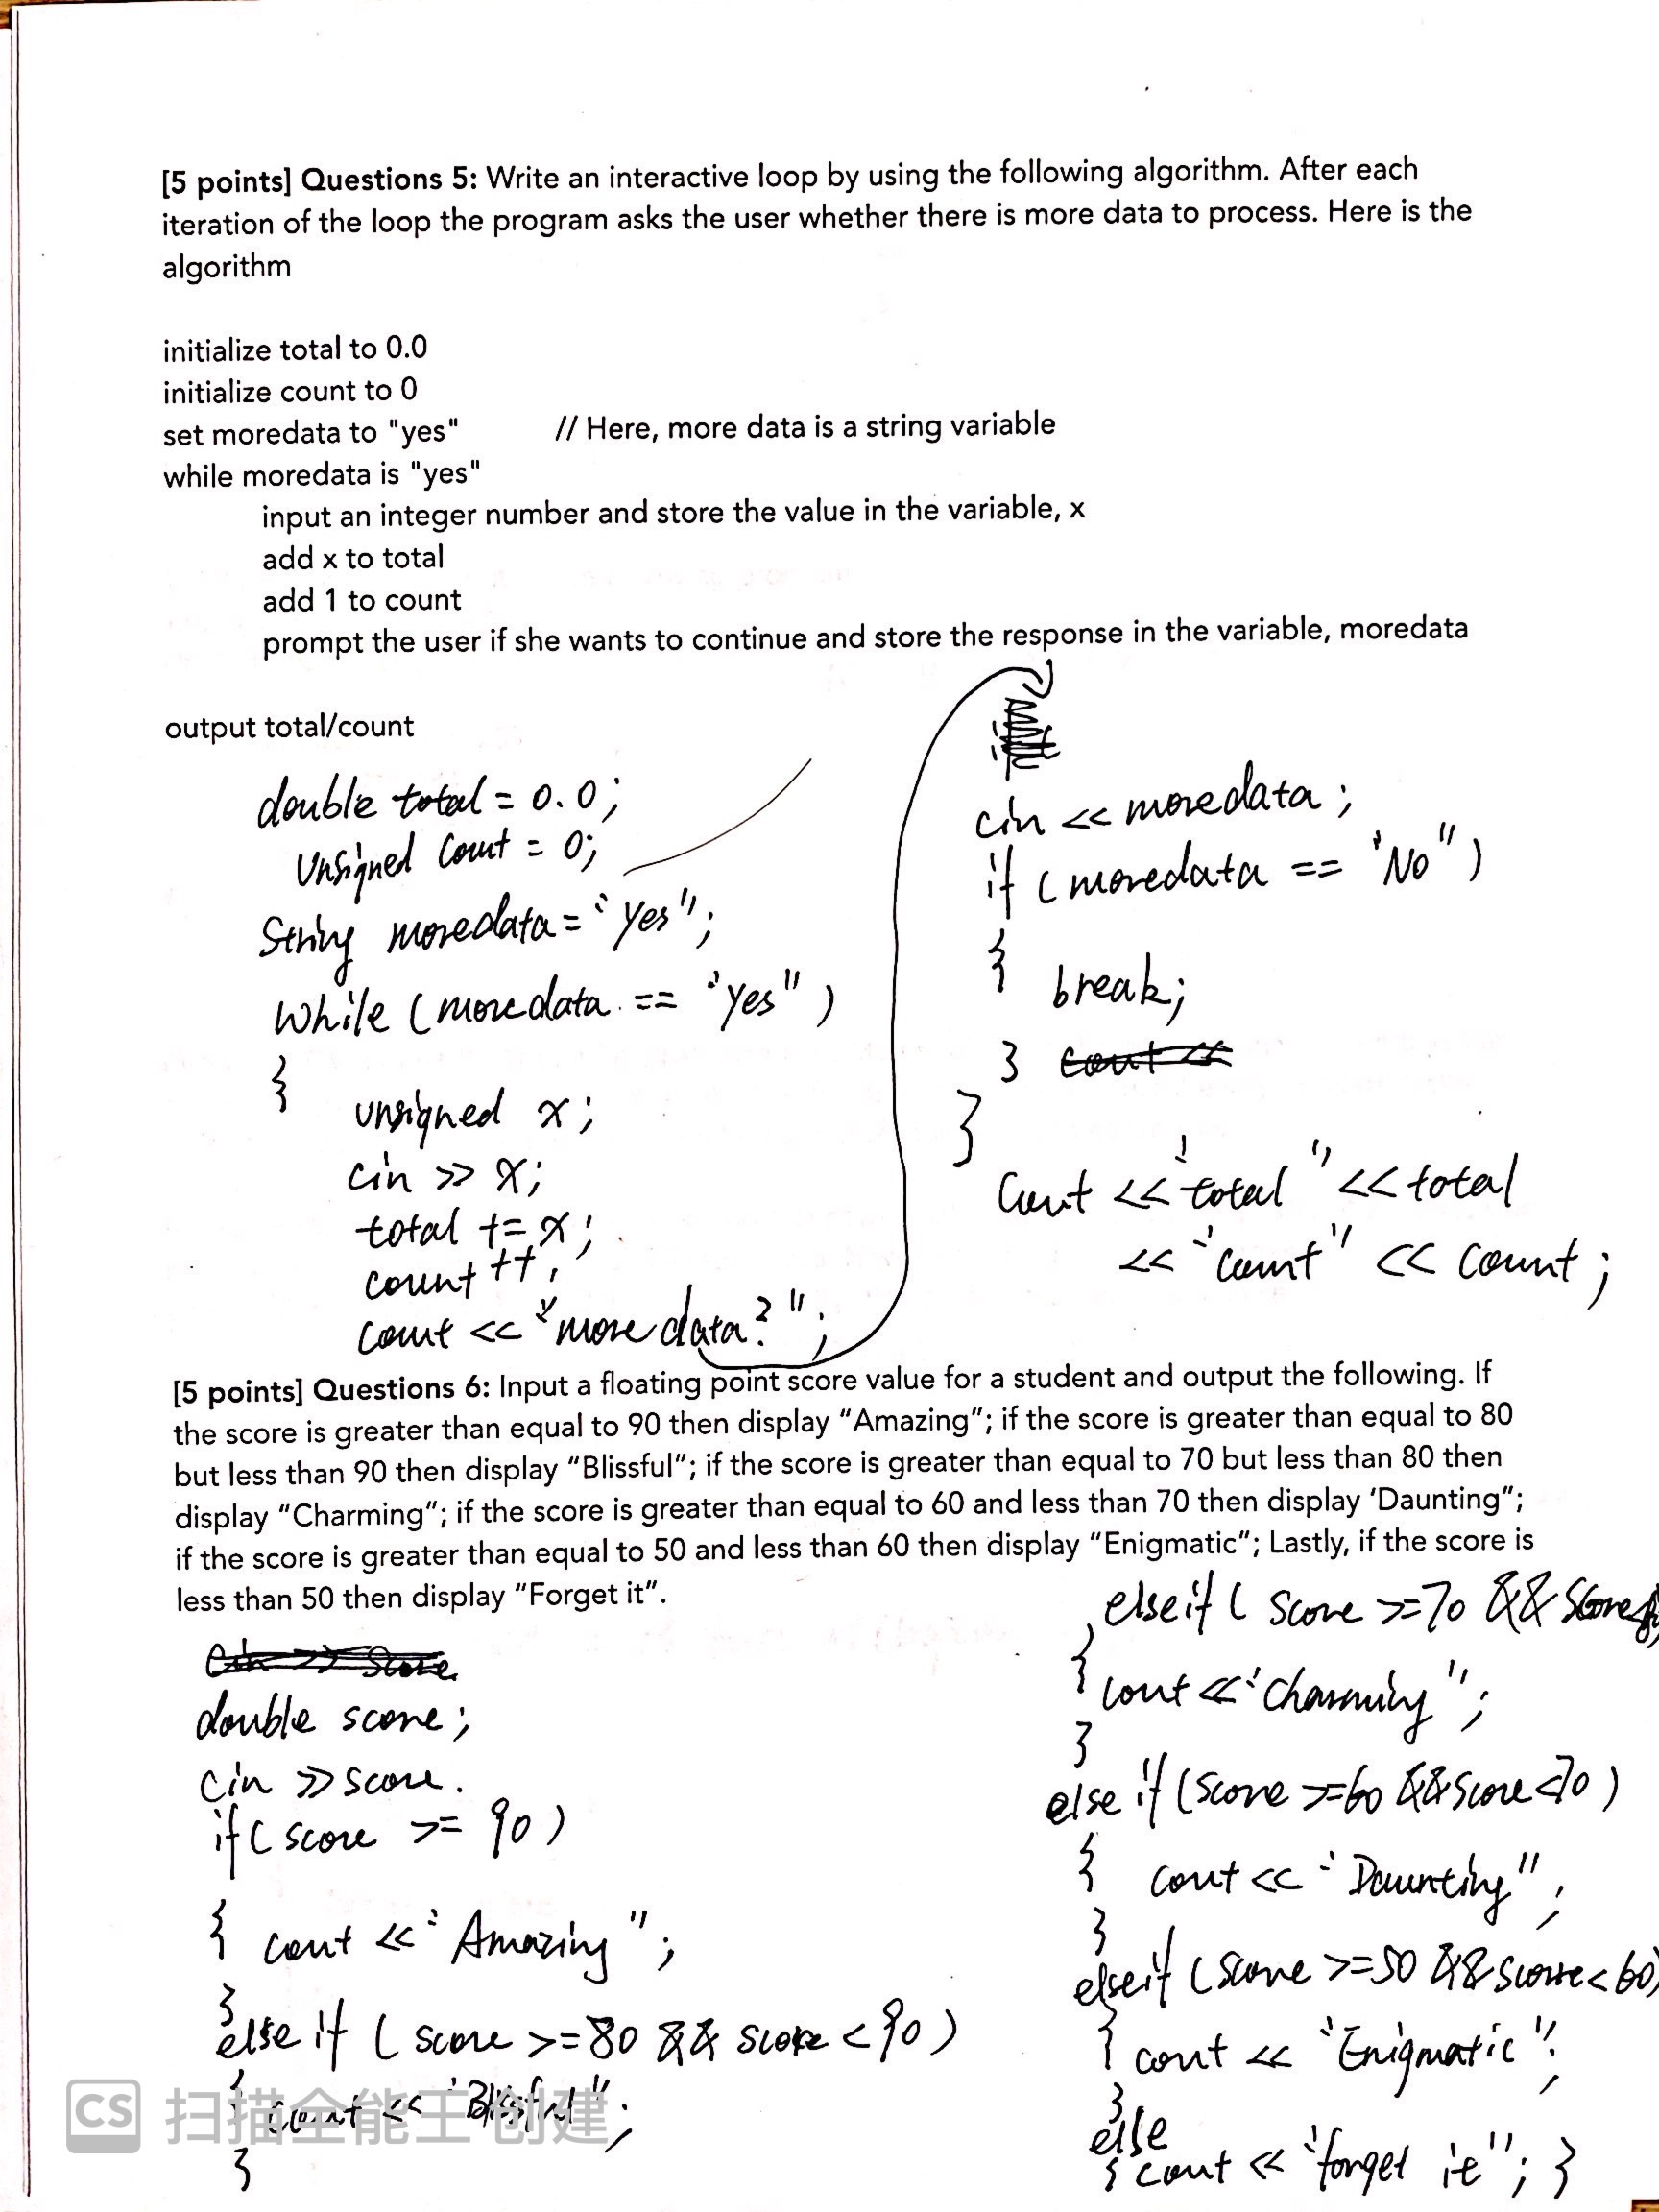 [5 points] Questions 5: Write an interactive loop by using the following algorithm. After each
iteration of the loop the program asks the user whether there is more data to process. Here is the
algorithm
initialize total to 0.0
initialize count to 0
set moredata to "yes" // Here, more data is a string variable
while moredata is "yes"
input an integer number and store the value in the variable, x
add x to total
add 1 to count
prompt the user if she wants to continue and store the response in the variable, moredata
output total/count
double total = 0.0;
Unsigned Count = 0;
String moredata = "yes";
While (moredata == "yes")
{
unsigned x;
cin >> x;
total += x;
count ++;
cout << "more data?";
cin << moredata;
if (moredata == "No")
{
break;
}
cout <<
}
Cout << "total" << total
<< "count" << count;
[5 points] Questions 6: Input a floating point score value for a student and output the following. If
the score is greater than equal to 90 then display “Amazing”; if the score is greater than equal to 80
but less than 90 then display “Blissful”; if the score is greater than equal to 70 but less than 80 then
display “Charming”; if the score is greater than equal to 60 and less than 70 then display ‘Daunting”;
if the score is greater than equal to 50 and less than 60 then display “Enigmatic”; Lastly, if the score is
less than 50 then display “Forget it”.
Cin >> Score
double score;
cin >> score.
if ( score >= 90 )
{ cout << "Amazing";
}
else if ( score >= 80 && score < 90 )
{ cout << "Blissful";
}
else if ( score >= 70 && score
{ cout << "Charming";
}
else if (score >= 60 && score < 70 )
{ cout << "Daunting";
}
else if (score >= 50 && score < 60)
{ cout << "Enigmatic";
}
else
{ cout << "forget it"; }
CS 扫描全能王 创建